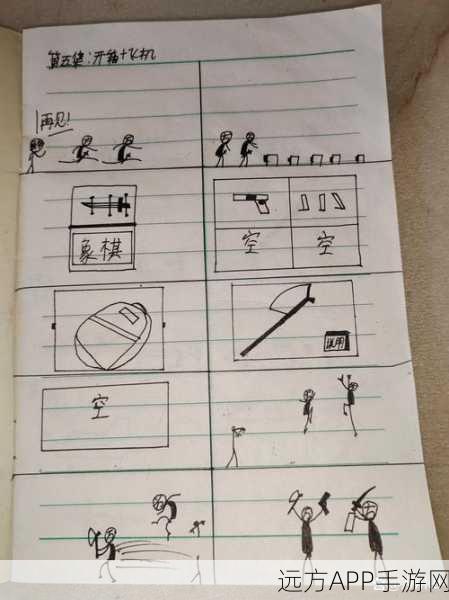 第五集:开箱+飞机
再见!
象棋
空 空
试用
空
远方APP手游网